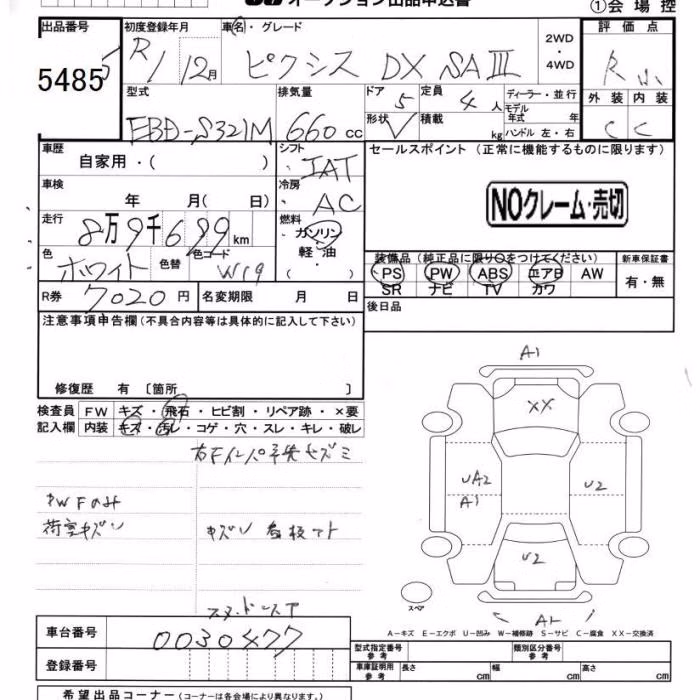 オークション出品申込書
①会場控
出品番号 初度登録年月 車名・グレード 評価点
5485 R1/12月 ピクシス DX SAIII 2WD・4WD R
外装 内装
C C
型式 排気量 ドア 5 定員 4人 ディーラー・並行
EBD-S321M 660cc 形状 V 積載 kg モデル年式 年
ハンドル 左・右
車歴 シフト セールスポイント (正常に機能するものに限ります)
自家用・( ) IAT
車検 年 月( 日) 冷房 AC
NOクレーム・売切
走行 8万9千699km 燃料 ガソリン・軽油・( )
色 ホワイト 色替 色コード W19
装備品 (純正品に限り○をつけてください) 新車保証書
PS PW ABS エアB AW 有・無
SR ナビ TV カワ
R券 7020円 名変期限 月 日
後日品
注意事項申告欄 (不具合内容等は具体的に記入して下さい)
修復歴 有 〔箇所 〕
検査員 FW キズ・飛石・ヒビ割・リペア跡・×要
記入欄 内装 キズ・汚レ・コゲ・穴・スレ・キレ・破レ
A1
XX
UA2
A1
U2
U2
荷室キズ
スペア
A1
A－キズ E－エクボ U－凹み W－補修跡 S－サビ C－腐食 XX－交換済
車台番号 0030477
登録番号
型式指定番号 参考 類別区分番号 参考
車庫証明用 参考 長さ cm 幅 cm 高さ cm
希望出品コーナー (コーナーは各会場により異なります。)